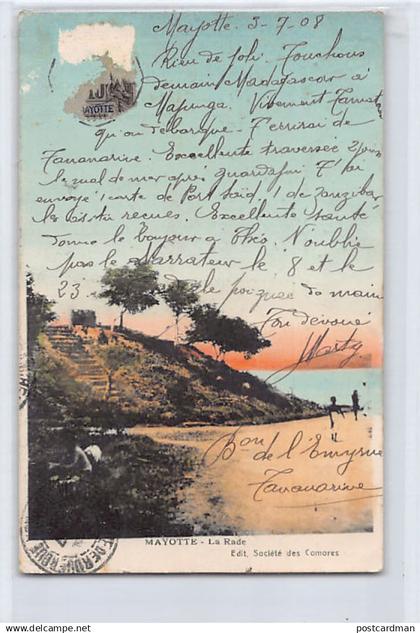 Mayotte 3-7-08
Rien de joli. Touchons
demain Madagascar à
Majunga. Vivement Tamat
MAYOTTE
qu'on débarque - T'écrirai de
Tananarive. Excellente traversée
le mal de mer après Guardafui T'ai
envoyé 1 carte de Port Saïd 1 de Zanzibar
les as-tu reçues. Excellente santé
donne le bonjour à Théo. N'oublie
pas le Narrateur le 8 et le
23
la poignée de main
Ton dévoué
Bon de l'Emyrne
Tananarive
MAYOTTE - La Rade
Edit, Société des Comores
© postcardman
postcardman.com